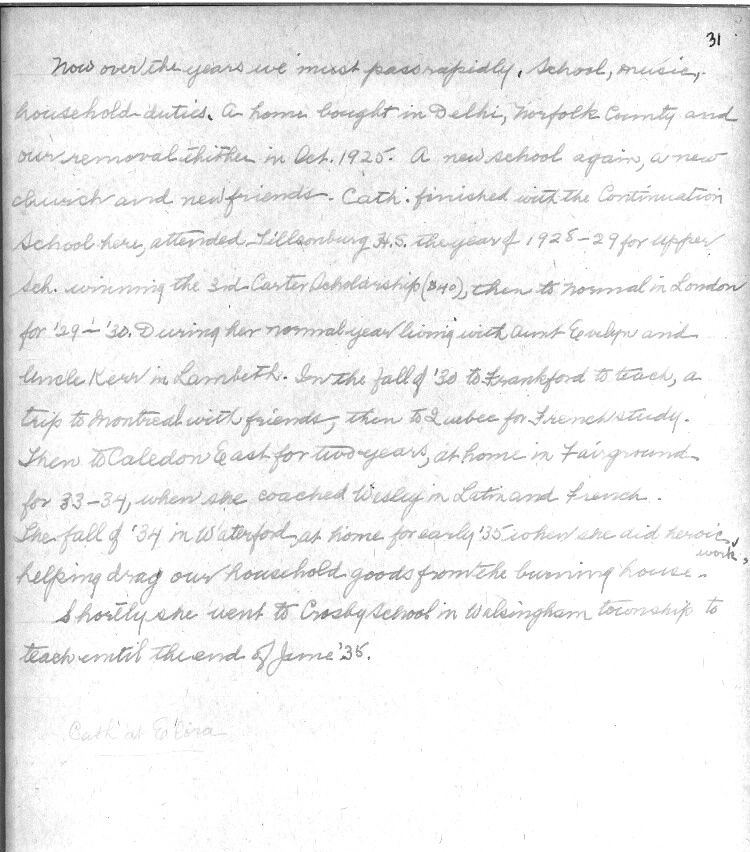 31
Now over the years we must pass rapidly. School, music,
household duties. A home bought in Delhi, Norfolk County and
our removal thither in Oct. 1925. A new school again, a new
church and new friends. Cath. finished with the Continuation
School here, attended Tillsonburg H.S. the year of 1928-29 for upper
Sch. winning the 3rd Carter Scholarship ($40), then to normal in London
for '29-'30. During her normal year living with Aunt Evelyn and
Uncle Kerr in Lambeth. In the fall of '30 to Frankford to teach, a
trip to Montreal with friends, then to Quebec for French study.
Then to Caledon East for two years, at home in Fairground
for 33-34, when she coached Wesley in Latin and French.
The fall of '34 in Waterford, at home for early '35 when she did heroic
work,
helping drag our household goods from the burning house.
Shortly she went to Crosby School in Walsingham township to
teach until the end of June '35.
Cath' at Elora